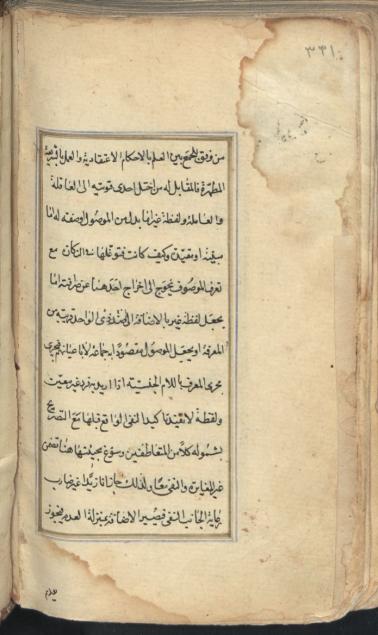 ٣٣١
من وفق للجمع بين العلم بالاحكام الاعتقادية والعمل بالشريعة
المطهرة فالمقابل له من اختل احدى قوتيه الى العاقلة
والعاملة ولفظة غير اما بدل من الموصول او صفته له اما
مبينة او مقيدة وكيف كانت فتوغلها في النكارة مع
تعرف الموصوف يحوج الى اخراج احدهما عن صرافته اما
بجعل لفظة غير بالاضافة الى ذي الضد الواحد قريبة من
المعرفة او بجعل الموصول مقصودا به جماعة لا باعيانهم فيجرى
مجرى المعرف باللام الجنسية اذا اريد به فرد غير معين
ولفظة لا تفيد تاكيد النفى الواقع قبلها مع التصريح
بشموله كلا من المتعاطفين وسوغ مجيئها هنا تضمن
غير المغايرة والنفى معا ولذلك جاز انا زيدا غير ضارب
رعاية لجانب النفى فتصير الاضافة بمنزلة العدم فيجوز